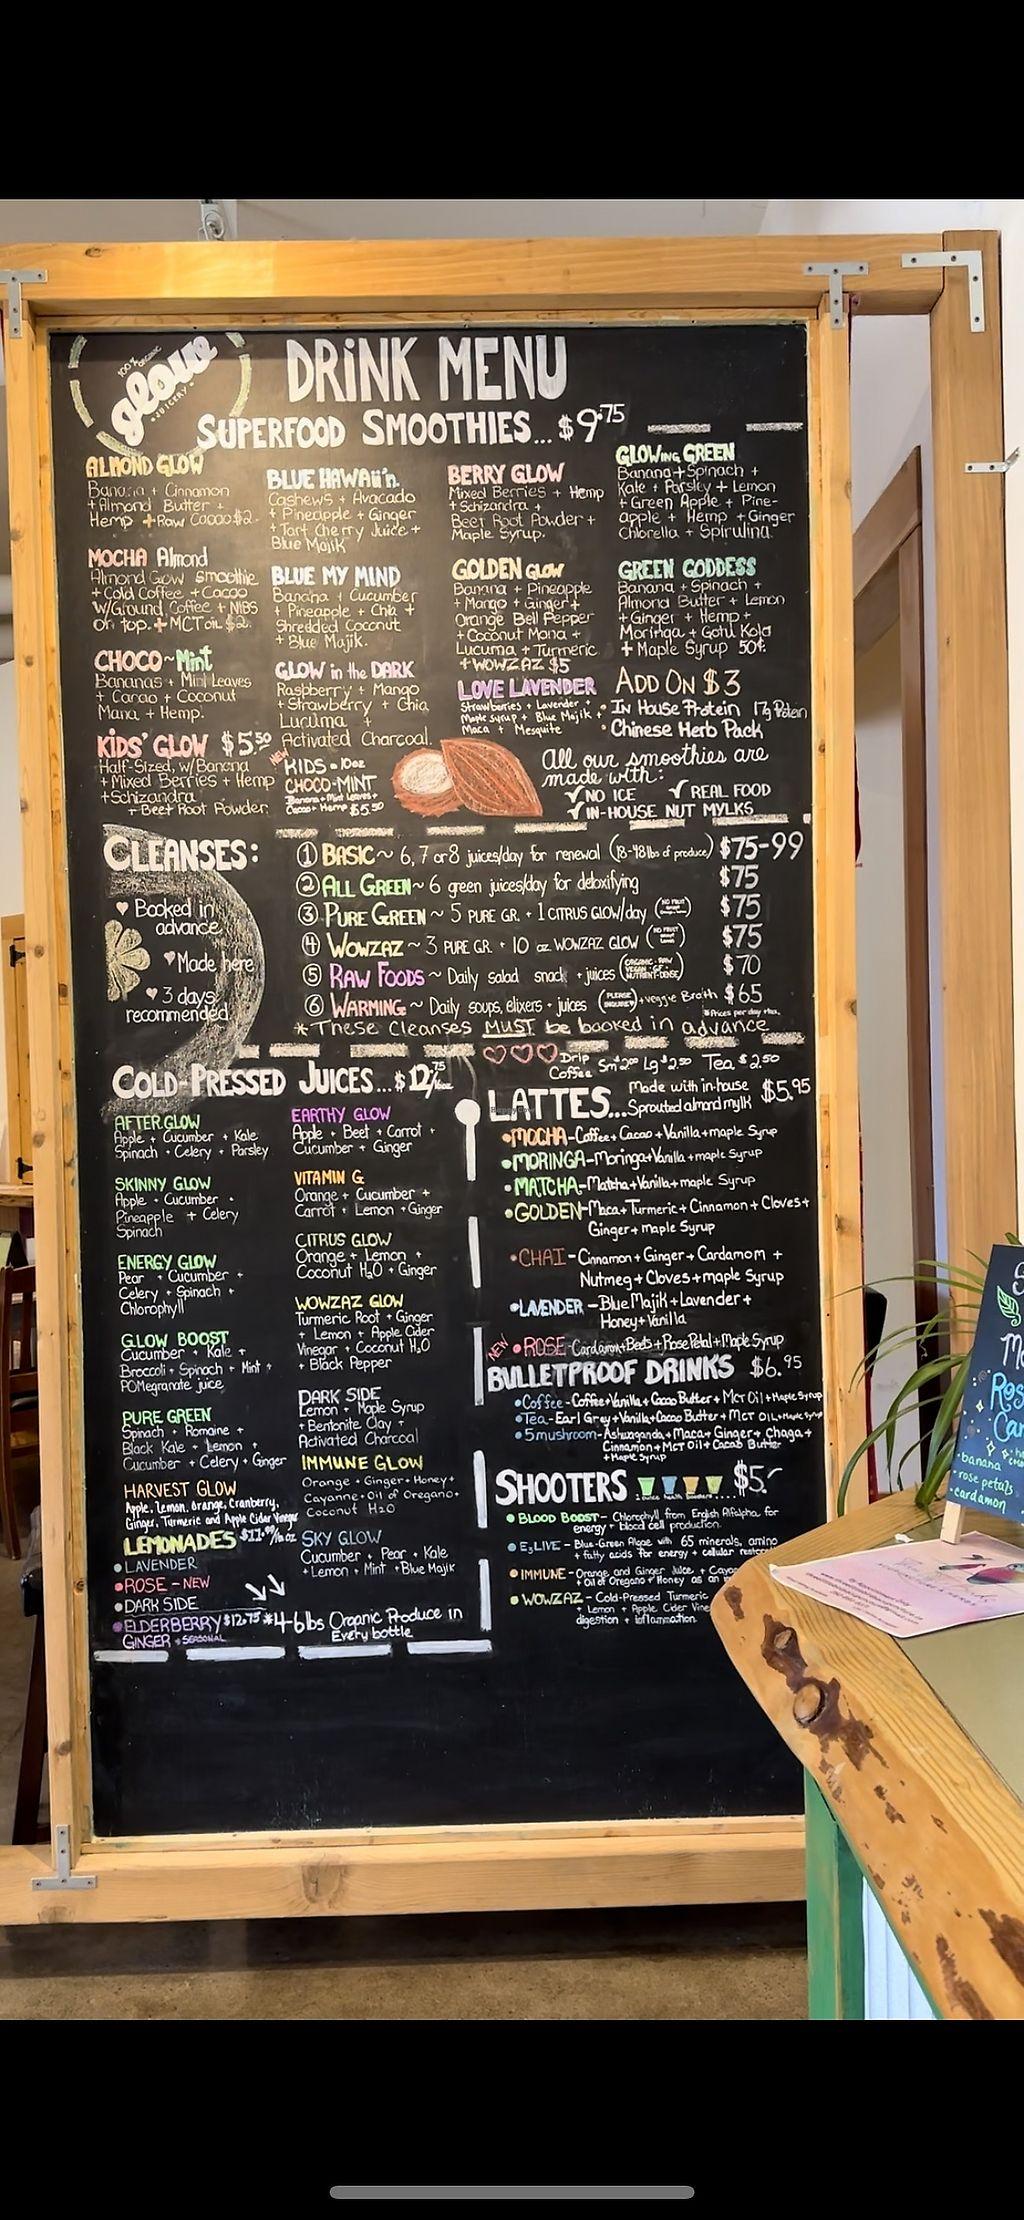 100% ORGANIC
glow
JUICERY
DRiNK MENU
SUPERFOOD SMOOTHIES... $9.75
ALMOND GLOW
Banana + Cinnamon
+ Almond Butter +
Hemp + Raw Cacao $2
MOCHA Almond
Almond Glow smoothie
+ Cold Coffee + Cacao
w/Ground Coffee + NIBS
on top. + MCT oil $2.
CHOCO~Mint
Bananas + Mint Leaves
+ Cacao + Coconut
Mana + Hemp.
KIDS' GLOW $5.50
Half-Sized, w/Banana
+ Mixed Berries + Hemp
+ Schizandra
+ Beet Root Powder.
BLUE HAWAii'n.
Cashews + Avacado
+ Pineapple + Ginger
+ Tart Cherry Juice +
Blue Majik
BLUE MY MIND
Banana + Cucumber
+ Pineapple + Chia +
Shredded Coconut
+ Blue Majik.
GLOW in the DARK
Raspberry + Mango
+ Strawberry + Chia
Lucuma +
Activated Charcoal.
NEW
KIDS - 10oz
CHOCO-MINT
Banana + Mint Leaves +
Cacao + Hemp $5.50
BERRY GLOW
Mixed Berries + Hemp
+ Schizandra +
Beet Root Powder +
Maple Syrup.
GOLDEN GLOW
Banana + Pineapple
+ Mango + Ginger +
Orange Bell Pepper
+ Coconut Mana +
Lucuma + Turmeric
+ WOWZAZ $5
LOVE LAVENDER
Strawberries + Lavender +
Maple Syrup + Blue Majik +
Maca + Mesquite
GLOWING GREEN
Banana + Spinach +
Kale + Parsley + Lemon
+ Green Apple + Pine-
apple + Hemp + Ginger
Chlorella + Spirulina.
GREEN GODDESS
Banana + Spinach +
Almond Butter + Lemon
+ Ginger + Hemp +
Moringa + Gotu Kola
+ Maple Syrup 50¢
ADD ON $3
• In House Protein 17g Protein
• Chinese Herb Pack
All our smoothies are
made with:
✓ NO ICE ✓ REAL FOOD
✓ IN-HOUSE NUT MYLKS
CLEANSES:
♥ Booked in
advance
♥ Made here
♥ 3 days
recommended.
① BASIC ~ 6, 7 or 8 juices/day for renewal (18-48 lbs of produce) $75-99
② ALL GREEN ~ 6 green juices/day for detoxifying $75
③ PURE GREEN ~ 5 PURE GR. + 1 CITRUS GLOW/day $75
④ WOWZAZ ~ 3 PURE GR. + 10 oz. WOWZAZ GLOW $75
⑤ RAW FOODS ~ Daily salad snack + juices (ORGANIC · RAW VEGAN · GF · NUTRIENT-DENSE) $70
⑥ WARMING ~ Daily soups, elixers + juices (PLEASE INQUIRE) + veggie Broth $65
*Prices per day
*These Cleanses MUST be booked in advance
COLD-PRESSED JUICES... $12.75/16oz
AFTER GLOW
Apple + Cucumber + Kale
Spinach + Celery + Parsley
SKINNY GLOW
Apple + Cucumber +
Pineapple + Celery
Spinach
ENERGY GLOW
Pear + Cucumber +
Celery + Spinach +
Chlorophyll
GLOW BOOST
Cucumber + Kale +
Broccoli + Spinach + Mint +
POMegranate juice
PURE GREEN
Spinach + Romaine +
Black Kale + Lemon +
Cucumber + Celery + Ginger
HARVEST GLOW
Apple, Lemon, Orange, Cranberry,
Ginger, Turmeric and Apple Cider Vinegar
LEMONADES $11.00/16oz
• LAVENDER
• ROSE - NEW
• DARK SIDE
• ELDERBERRY $12.75
GINGER + SEASONAL
EARTHY GLOW
Apple + Beet + Carrot +
Cucumber + Ginger
VITAMIN G
Orange + Cucumber +
Carrot + Lemon + Ginger
CITRUS GLOW
Orange + Lemon +
Coconut H2O + Ginger
WOWZAZ GLOW
Turmeric Root + Ginger
+ Lemon + Apple Cider
Vinegar + Coconut H2O
+ Black Pepper
DARK SIDE
Lemon + Maple Syrup
+ Bentonite Clay +
Activated Charcoal
IMMUNE GLOW
Orange + Ginger + Honey +
Cayanne + Oil of Oregano +
Coconut H2O
SKY GLOW
Cucumber + Pear + Kale
+ Lemon + Mint + Blue Majik
*4-6 lbs Organic Produce in
Every bottle
Drip
Coffee Sm $2.00 Lg $2.50 Tea $2.50
LATTES... Made with in-house
Sprouted almond mylk $5.95
• MOCHA - Coffee + Cacao + Vanilla + maple Syrup
• MORINGA - Moringa + Vanilla + maple Syrup
• MATCHA - Matcha + Vanilla + maple Syrup
• GOLDEN - Maca + Turmeric + Cinnamon + Cloves +
Ginger + Maple Syrup
• CHAI - Cinnamon + Ginger + Cardamom +
Nutmeg + Cloves + maple Syrup
• LAVENDER - Blue Majik + Lavender +
Honey + Vanilla
NEW • ROSE - Cardamom + Beets + Rose Petal + Maple Syrup
BULLETPROOF DRINKS $6.95
• Coffee - Coffee + Vanilla + Cacao Butter + Mct Oil + Maple Syrup
• Tea - Earl Grey + Vanilla + Cacao Butter + MCT OIL + Maple Syrup
• 5 mushroom - Ashwaganda + Maca + Ginger + Chaga +
Cinnamon + MCT Oil + Cacao Butter
+ Maple Syrup
SHOOTERS .... $5.
• BLOOD BOOST - Chlorophyll from English Alfalpha for
energy + blood cell production.
• E3LIVE - Blue-Green Algae with 65 minerals, amino
+ fatty acids for energy + cellular
• IMMUNE - Orange and Ginger Juice +
+ oil of Oregano + Honey as an
• WOWZAZ - Cold-Pressed Turmeric
+ Lemon + Apple Cider
digestion + inflammation.
• banana
• rose petals
• cardamon